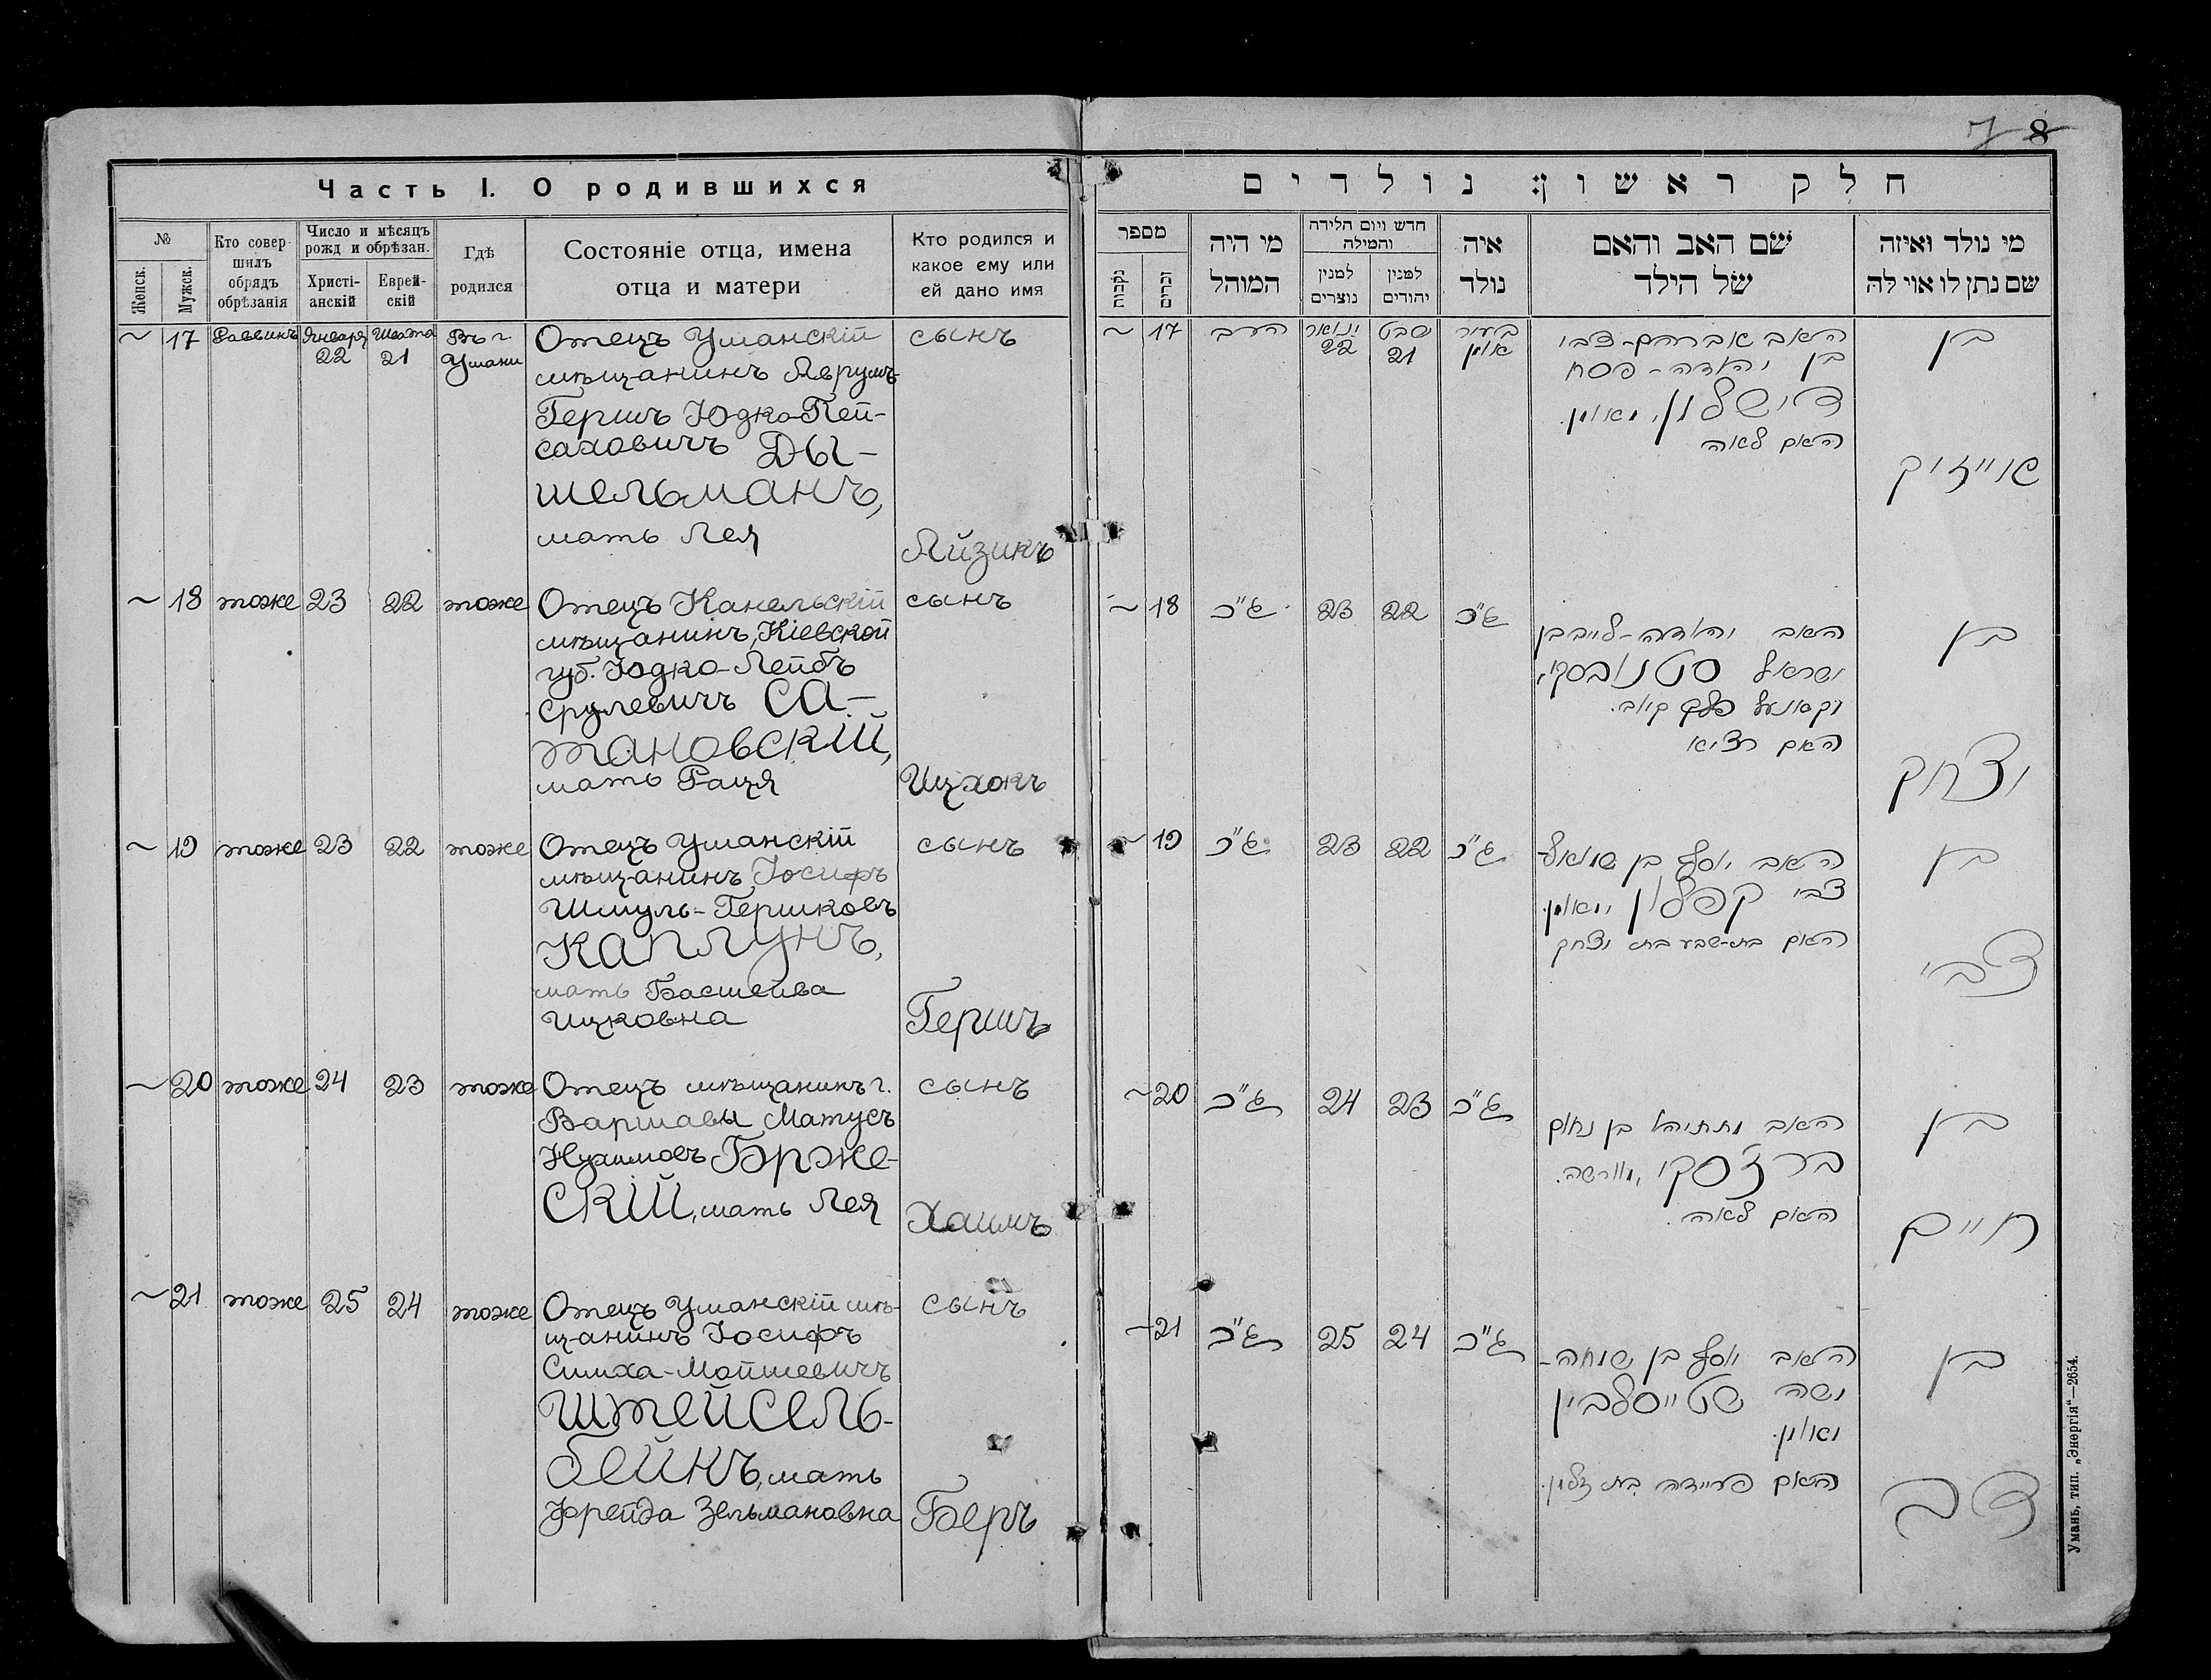 7 8
Часть I. О родившихся
№
Женск.
Мужск.
Кто совер-
шилъ
обрядъ
обрѣзанія
Число и мѣсяцъ
рожд и обрѣзан.
Христі-
анскій
Еврей-
скій
Гдѣ
родился
Состояніе отца, имена
отца и матери
Кто родился и
какое ему или
ей дано имя
~ 17 Раввинъ Января 22 Шевата 21 Въ г. Умани
Отецъ Уманскій
мѣщанинъ Аврумъ-
Гершъ Юдко-Пей-
саховичъ ДЫ-
ШЕЛЬМАНЪ,
мать Лея
сынъ
Айзикъ
~ 18 тоже 23 22 тоже
Отецъ Канельскій
мѣщанинъ, Кіевской
губ. Юдко-Лейбъ
Срулевичъ СА-
ТАНОВСКІЙ,
мать Рація
сынъ
Ицхокъ
~ 19 тоже 23 22 тоже
Отецъ Уманскій
мѣщанинъ Іосифъ
Шмуль-Гершковъ
КАПЛУНЪ,
мать Басшейва
Ицковна
сынъ
Гершъ
~ 20 тоже 24 23 тоже
Отецъ мѣщанинъ г.
Варшавы Матусъ
Нухимовъ БРЖЕ-
СКІЙ, мать Лея
сынъ
Хаимъ
~ 21 тоже 25 24 тоже
Отецъ Уманскій мѣ-
щанинъ Іосифъ
Симха-Мойшевичъ
ШТЕЙСЕЛЬ-
БЕЙНЪ, мать
Фрейда Зельмановна
сынъ
Беръ
חלק ראשון: נולדים
מספר
נקבות
זכרים
מי היה
המוהל
חדש ויום הלידה
והמילה
למנין
נוצרים
למנין
יהודים
איה
נולד
שם האב והאם
של הילד
מי נולד ואיזה
שם נתן לו אוי לה
~ 17 הרב ינואר 22 שבט 21 בעיר אומן
האב אברהם-צבי
בן יהודה-פסח
דישלמן, מאומן.
האם לאה
בן
אייזיק
~ 18 ג"כ 23 22 ג"כ
האב יהודה-לייב בן
ישראל סטנובסקי,
פלך קיוב.
האם רציא
בן
יצחק
~ 19 ג"כ 23 22 ג"כ
האב יוסף בן שמואל-
צבי קפלון מאומן.
האם בת-שבע בת יצחק
בן
צבי
~ 20 ג"כ 24 23 ג"כ
האב מתתיהו בן נחום
ברזסקי, מוורשה.
האם לאה.
בן
חיים
~ 21 ג"כ 25 24 ג"כ
האב יוסף בן שמחה-
משה שטייסלביין
מאומן.
האם פריידה בת זלמן.
בן
דב
Умань, тип. „Энергія“—2654.